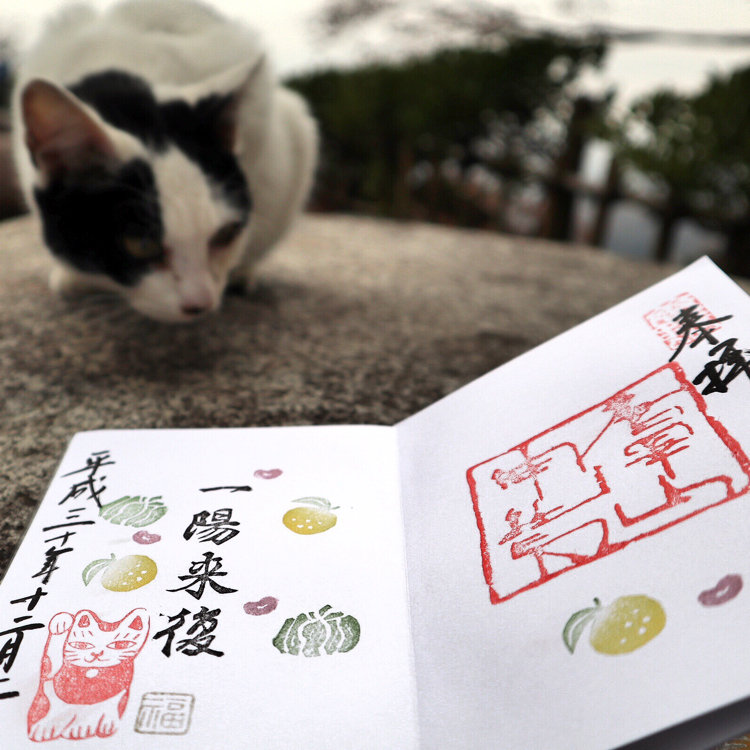 奉拝
一陽来復
平成三十年十二月二
福